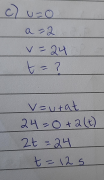 c) u=0
a=2
v=24
t=?
v=u+at
24=0+2(t)
2t=24
t=12s